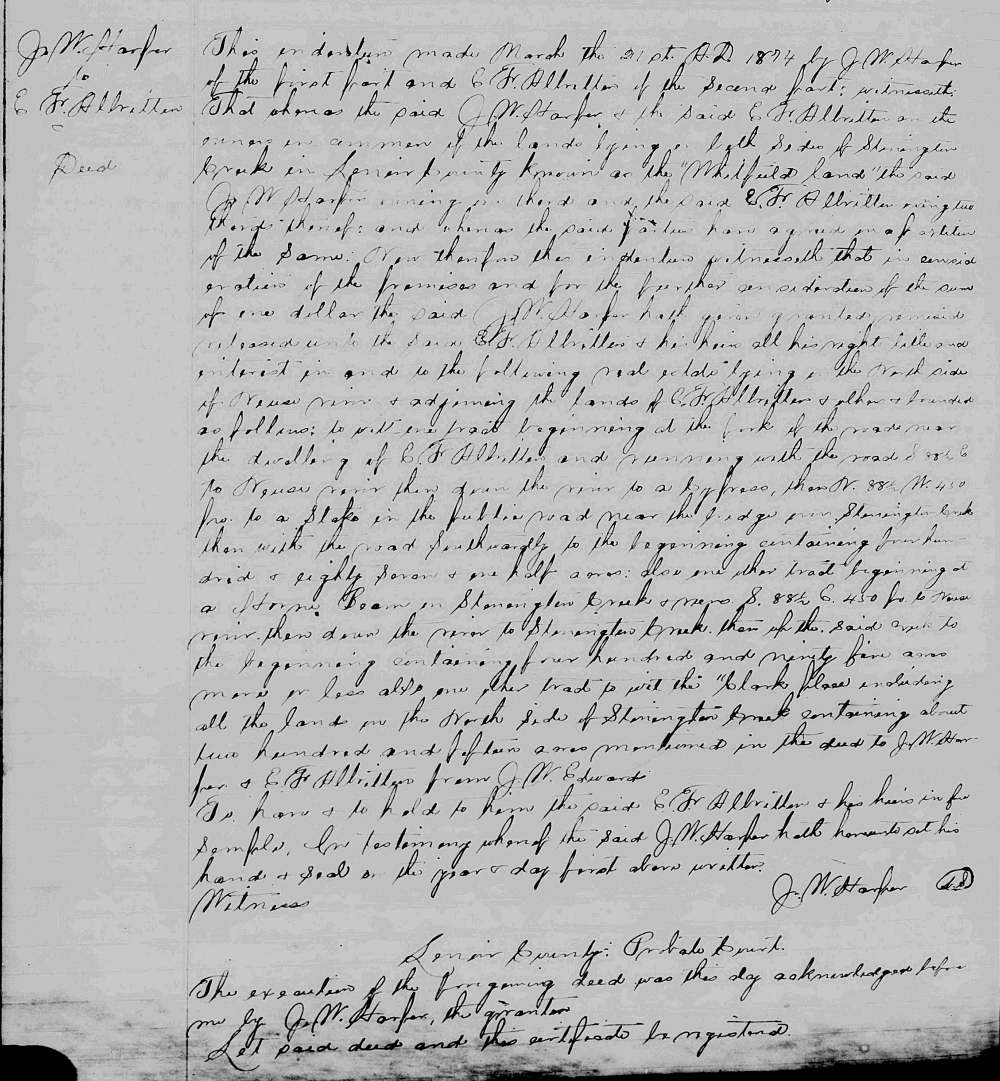 J. W. Harper
to
E F. Albritten
Deed
This indenture made March the 21st. A.D. 1874 by J W Harper
of the first part and E F. Albritten of the Second part: witnesseth:
That whereas the said J. W. Harper & the said E F. Albritten are the
owners in common of the lands lying on both Sides of Stonington
Creek in Lenoir County known as the "Whitfield land" the said
J. W Harper owning one third and the said E. F. Albritten owing two
thirds thereof: and whereas the said parties have agreed on a partition
of the Same. Now therefore this indenture witnesseth that in consid
eration of the premises and for the further consideration of the sum
of one dollar the said J. W. Harper hath given granted remised
released unto the said E F. Albritten & his heirs all his right title and
interest in and to the following real estate lying on the North side
of Neuse river & adjoining the lands of E. F. Albritten & others & bounded
as follows: to wit one tract beginning at the fork of the road near
the dwelling of E. F Albritten and running with the road S 88½ E
to Neuse river then down the river to a Cypress, then N. 88½ W. 450
po. to a Stake in the public road near the bridge over Stonington Creek
then with the road Southwardly to the beginning containing four hun-
dred & eighty Seven & one half acres: also one other tract beginning at
a Horne Beam on Stonington Creek & runs S. 88½ E. 450 po. to Neuse
river. then down the river to Stonington Creek. then up the. said creek to
the beginning containing four hundred and ninety five acres
more or less also one other tract to wit the "Clark place including
all the lands on the North Side of Stonington Creek containing about
two hundred and fifteen acres mentioned in the deed to J. W. Har-
per & E. F Albritten from J. W. Edwards
To have & to hold to him the said E. F. Albritten & his heirs in fee
Semple. In testimony whereof the said J. W. Harper hath hereunto set his
hand & Seal on the year & day first above written.
Witness
J. W. Harper L.S
Lenoir County: Probate Court.
The execution of the foregoing deed was this day acknowledged before
me by J. W. Harper, the grantor
Let said deed and this certificate be registered.